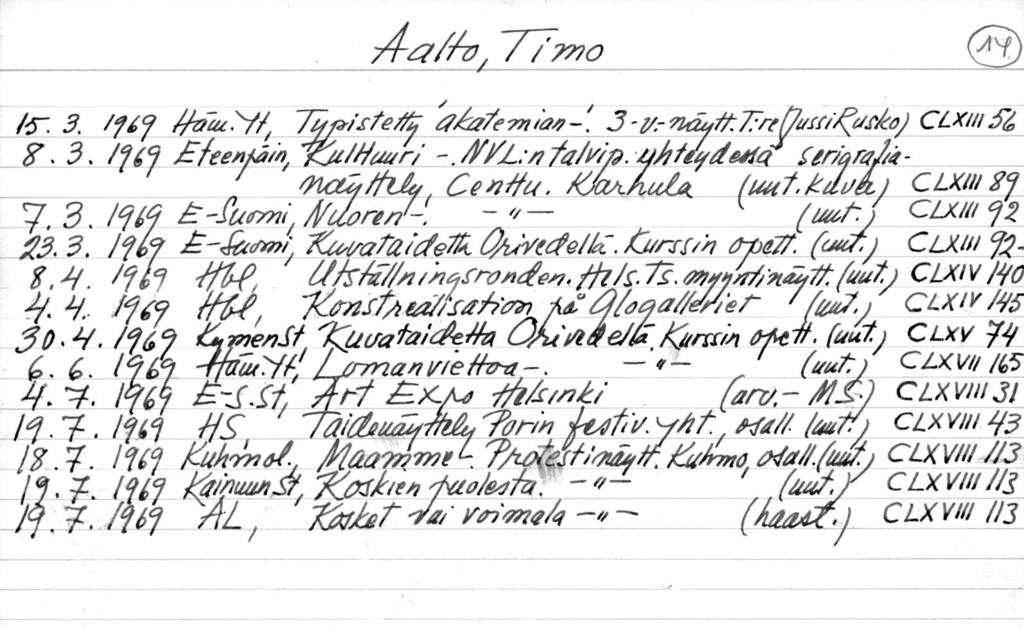 Aalto, Timo 14.
15. 3. 1969 Häm. Yt, Typistetty 'akatemian-'. 3-v:-näytt. T:re (Jussi Rusko) CLXIII 56
8. 3. 1969 Eteenpäin, Kulttuuri -. NVL:n talvip. yhteydessä serigrafia-
näyttely, Centtu. Karhula (uut. kuva) CLXIII 89
7. 3. 1969 E-Suomi, Nuoren -. -"- (uut.) CLXIII 92
23.3. 1969 E-Suomi, Kuvataidetta Orivedellä. Kurssin opett. (uut.) CLXIII 92-
8. 4. 1969 Hbl, Utställningsronden. Hels. Ts. myyntinäytt. (uut.) CLXIV 140
4. 4. 1969 Hbl, Konstrealisation på Glogalleriet (uut.) CLXIV 145
30. 4. 1969 KymenSt, Kuvataidetta Orivedellä. Kurssin opett. (uut.) CLXV 74
6. 6. 1969 Häm. Yt, Lomanviettoa -. -"- (uut.) CLXVII 165
4. 7. 1969 E-S.St, Art Expo Helsinki (arv. - M.S.) CLXVIII 31
19. 7. 1969 HS, Taidenäyttely Porin festiv. yht., osall. (uut.) CLXVIII 43
18. 7. 1969 Kuhmol., Maamme -. Protestinäytt. Kuhmo, osall. (uut.) CLXVIII 113
19. 7. 1969 KainuunSt, Koskien puolesta. -"- (uut.) CLXVIII 113
19. 7. 1969 AL, Kosket vai voimala -"- (haast.) CLXVIII 113